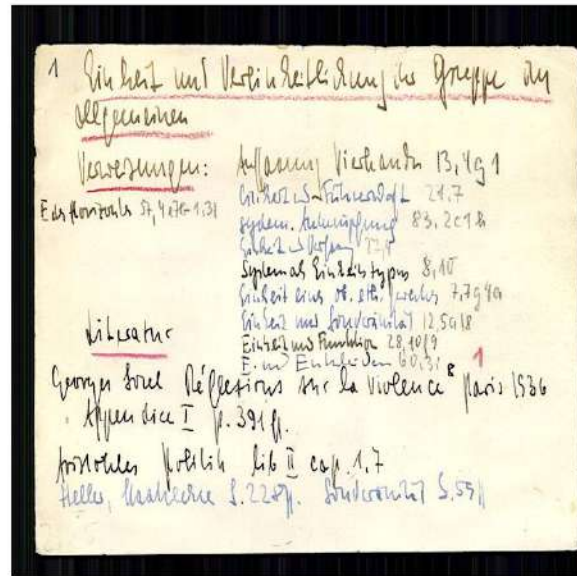 1 Einheit und Vereinheitlichung der Gruppe im
allgemeinen
Verweisungen: Auffassung Vierkandts 13,4g1
E des Horizontes 57,4e7G-1,31
Einheit u. Führerschaft 21.7
System. Anknüpfung 83,2c18
Einheit u Verfassung
System als Einheitstypus 8,10
Einheit eines 7,7g4a
Einheit und Souveränität 12,5a18
Einheit und Funktion 28,10f9
E. und Entscheiden 60,31
Literatur 1
Georges Sorel Réflexions sur la violence 8 Paris 1936
Appendice I p. 391ff.
Aristoteles Politik lib II cap. 1,7
Heller, Staatslehre S.228ff. Souveränität S.59ff